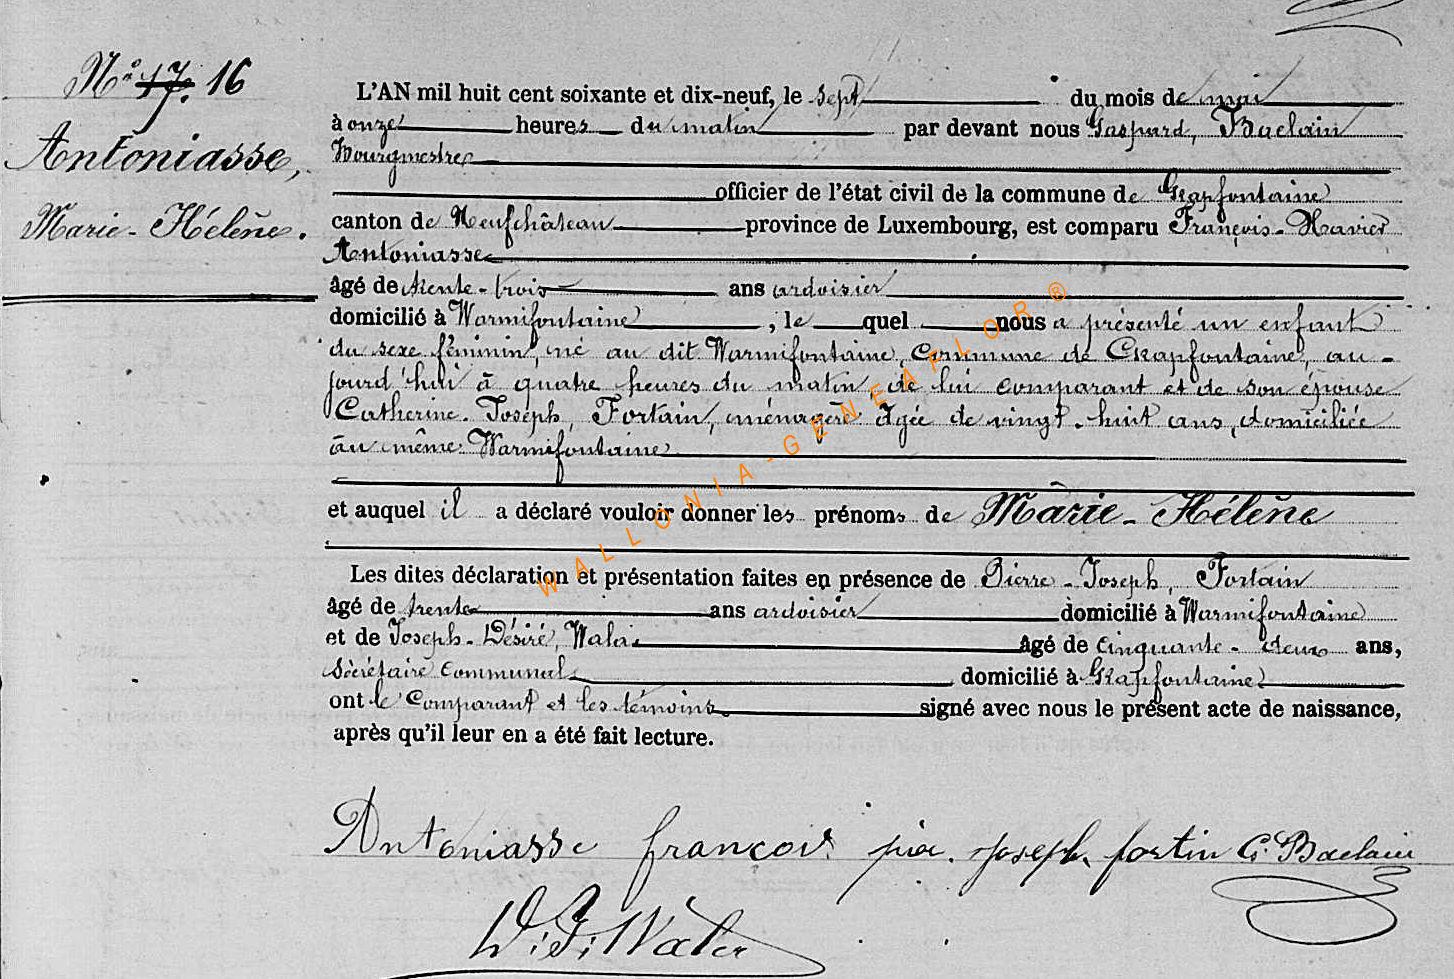 N° 17. 16
Antoniasse,
Marie-Hélène.
L'AN mil huit cent soixante et dix-neuf, le sept du mois de mai
à onze heures du matin par devant nous Gaspard, Baclain
Bourgmestre
officier de l'état civil de la commune de Grapfontaine
canton de Neufchâteau province de Luxembourg, est comparu François-Xavier
Antoniasse
âgé de trente-trois ans ardoisier
domicilié à Warmifontaine, le quel nous a présenté un enfant
du sexe féminin, né au dit Warmifontaine, commune de Grapfontaine, au-
jourd'hui à quatre heures du matin, de lui comparant et de son épouse
Catherine-Joseph, Fortain, ménagère âgée de vingt-huit ans, domiciliée
au même Warmifontaine
et auquel il a déclaré vouloir donner les prénoms de Marie-Hélène
Les dites déclaration et présentation faites en présence de Pierre-Joseph, Fortain
âgé de trente ans ardoisier domicilié à Warmifontaine
et de Joseph-Désiré, âgé de cinquante-deux ans,
secrétaire communal domicilié à Grapfontaine
ont le comparant et les témoins signé avec nous le présent acte de naissance,
après qu'il leur en a été fait lecture.
Antoniasse françois joseph fortin G. Baclain
WALLONIA-GENEAFLOR®